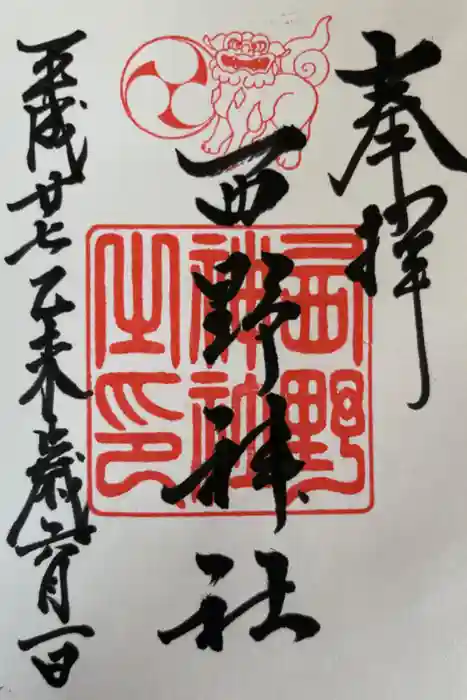 奉拝
西野神社
平成廿七乙未歳六月一日
西野
神社
之印